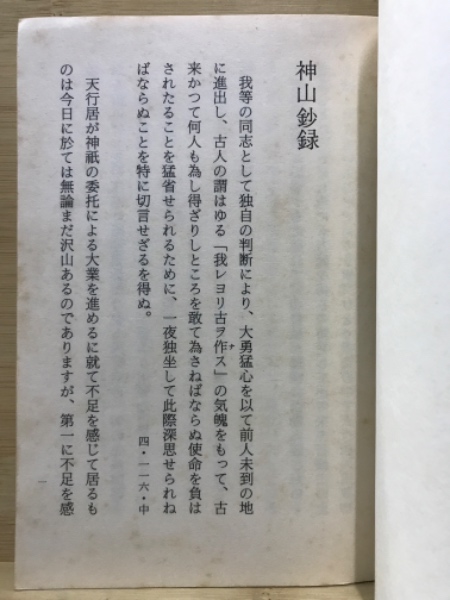 神山鈔録
我等の同志として独自の判断により、大勇猛心を以て前人未到の地
に進出し、古人の謂はゆる「我レヨリ古ヲ作ナス」の気魄をもって、古
来かつて何人も為し得ざりしところを敢て為さねばならぬ使命を負は
されたることを猛省せられるために、一夜独坐して此際深思せられね
ばならぬことを特に切言せざるを得ぬ。
四・一一六・中
天行居が神祇の委托による大業を進めるに就て不足を感じて居るも
のは今日に於ては無論まだ沢山あるのでありますが、第一に不足を感
一